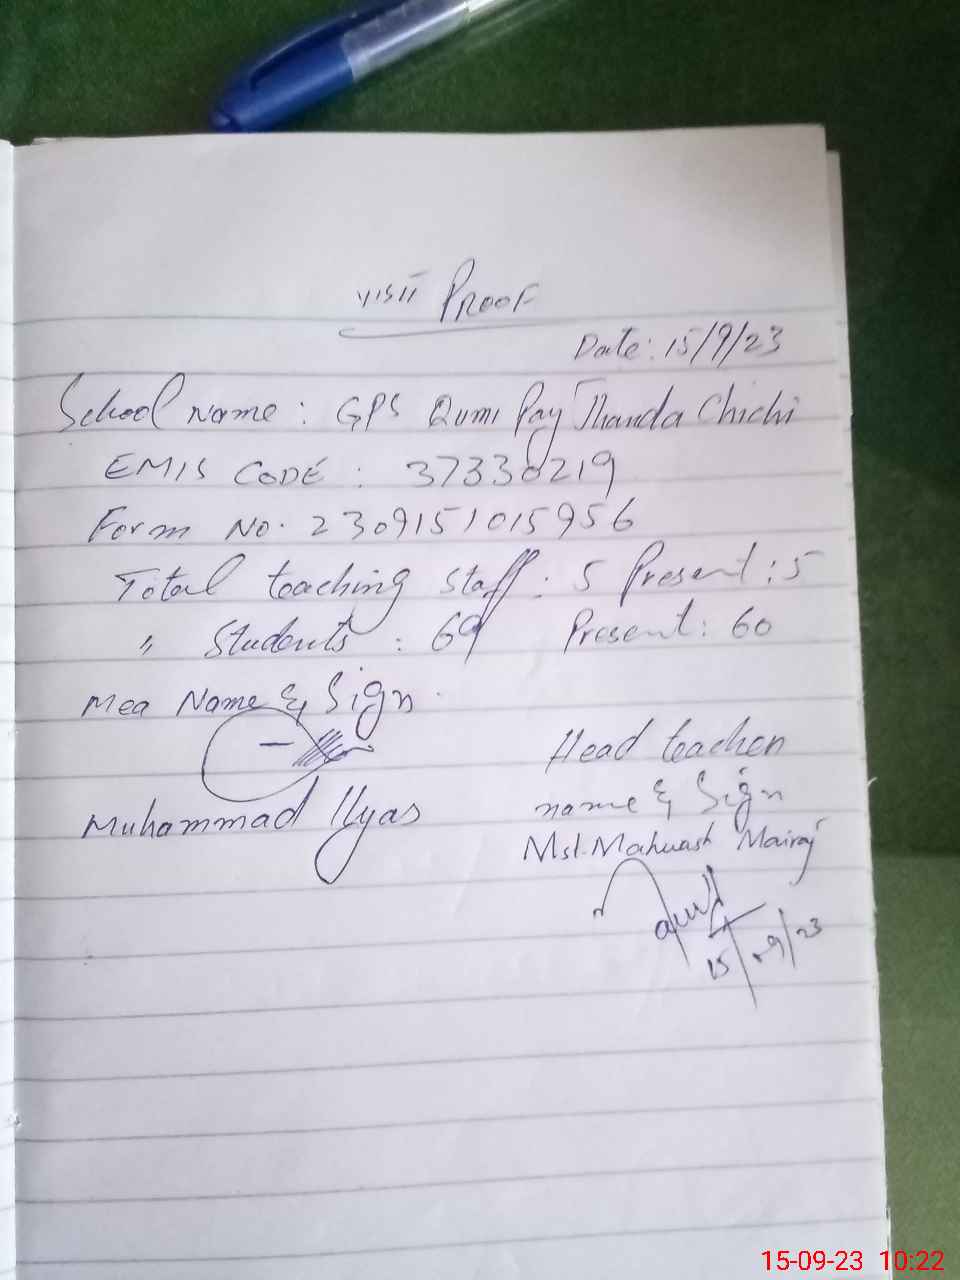 VISIT PROOF
Date: 15/9/23
School Name: GPS Qumi Pay Jhanda Chichi
EMIS CODE: 37330219
Form No. 2309151015956
Total teaching staff: 5 Present: 5
" Students: 69 Present: 60
Mea Name & Sign.
Muhammad Ilyas
Head teacher
name & Sign
Mst. Mahwash Mairaj
15/09/23
15-09-23 10:22